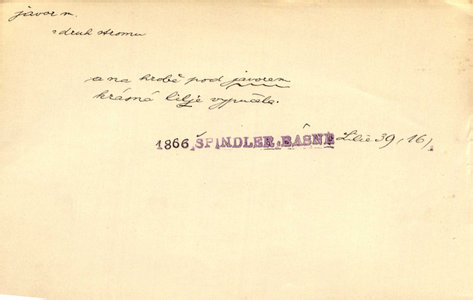 javor m.
druh stromu
a na hrobě pod javorem
krásná lilje vypučela.
1866 ŠPINDLER, BÁSNĚ Lilie 39, 16/